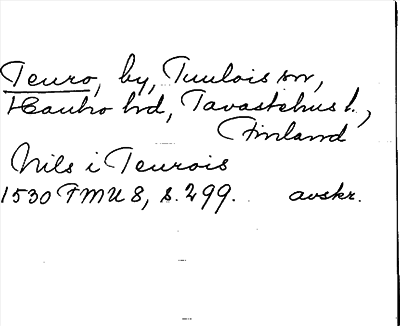 Teuro, by, Tuulois sn,
Hauho hd, Tavastehus l.,
Finland
Nils i Teurois
1530 FMU 8, s. 299. avskr.